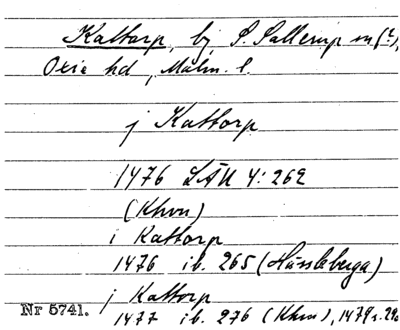 Kattarp, by, S. Sallerup sn (?),
Oxie hd, Malm. l.
j Kattorp
1476 LÄU 4: 262
(Khvn)
i Kattorp
1476 ib. 265 (Hässleberga)
Nr 5741. j Kattorp
1477 ib. 276 (Khvn), 1479 s. 290